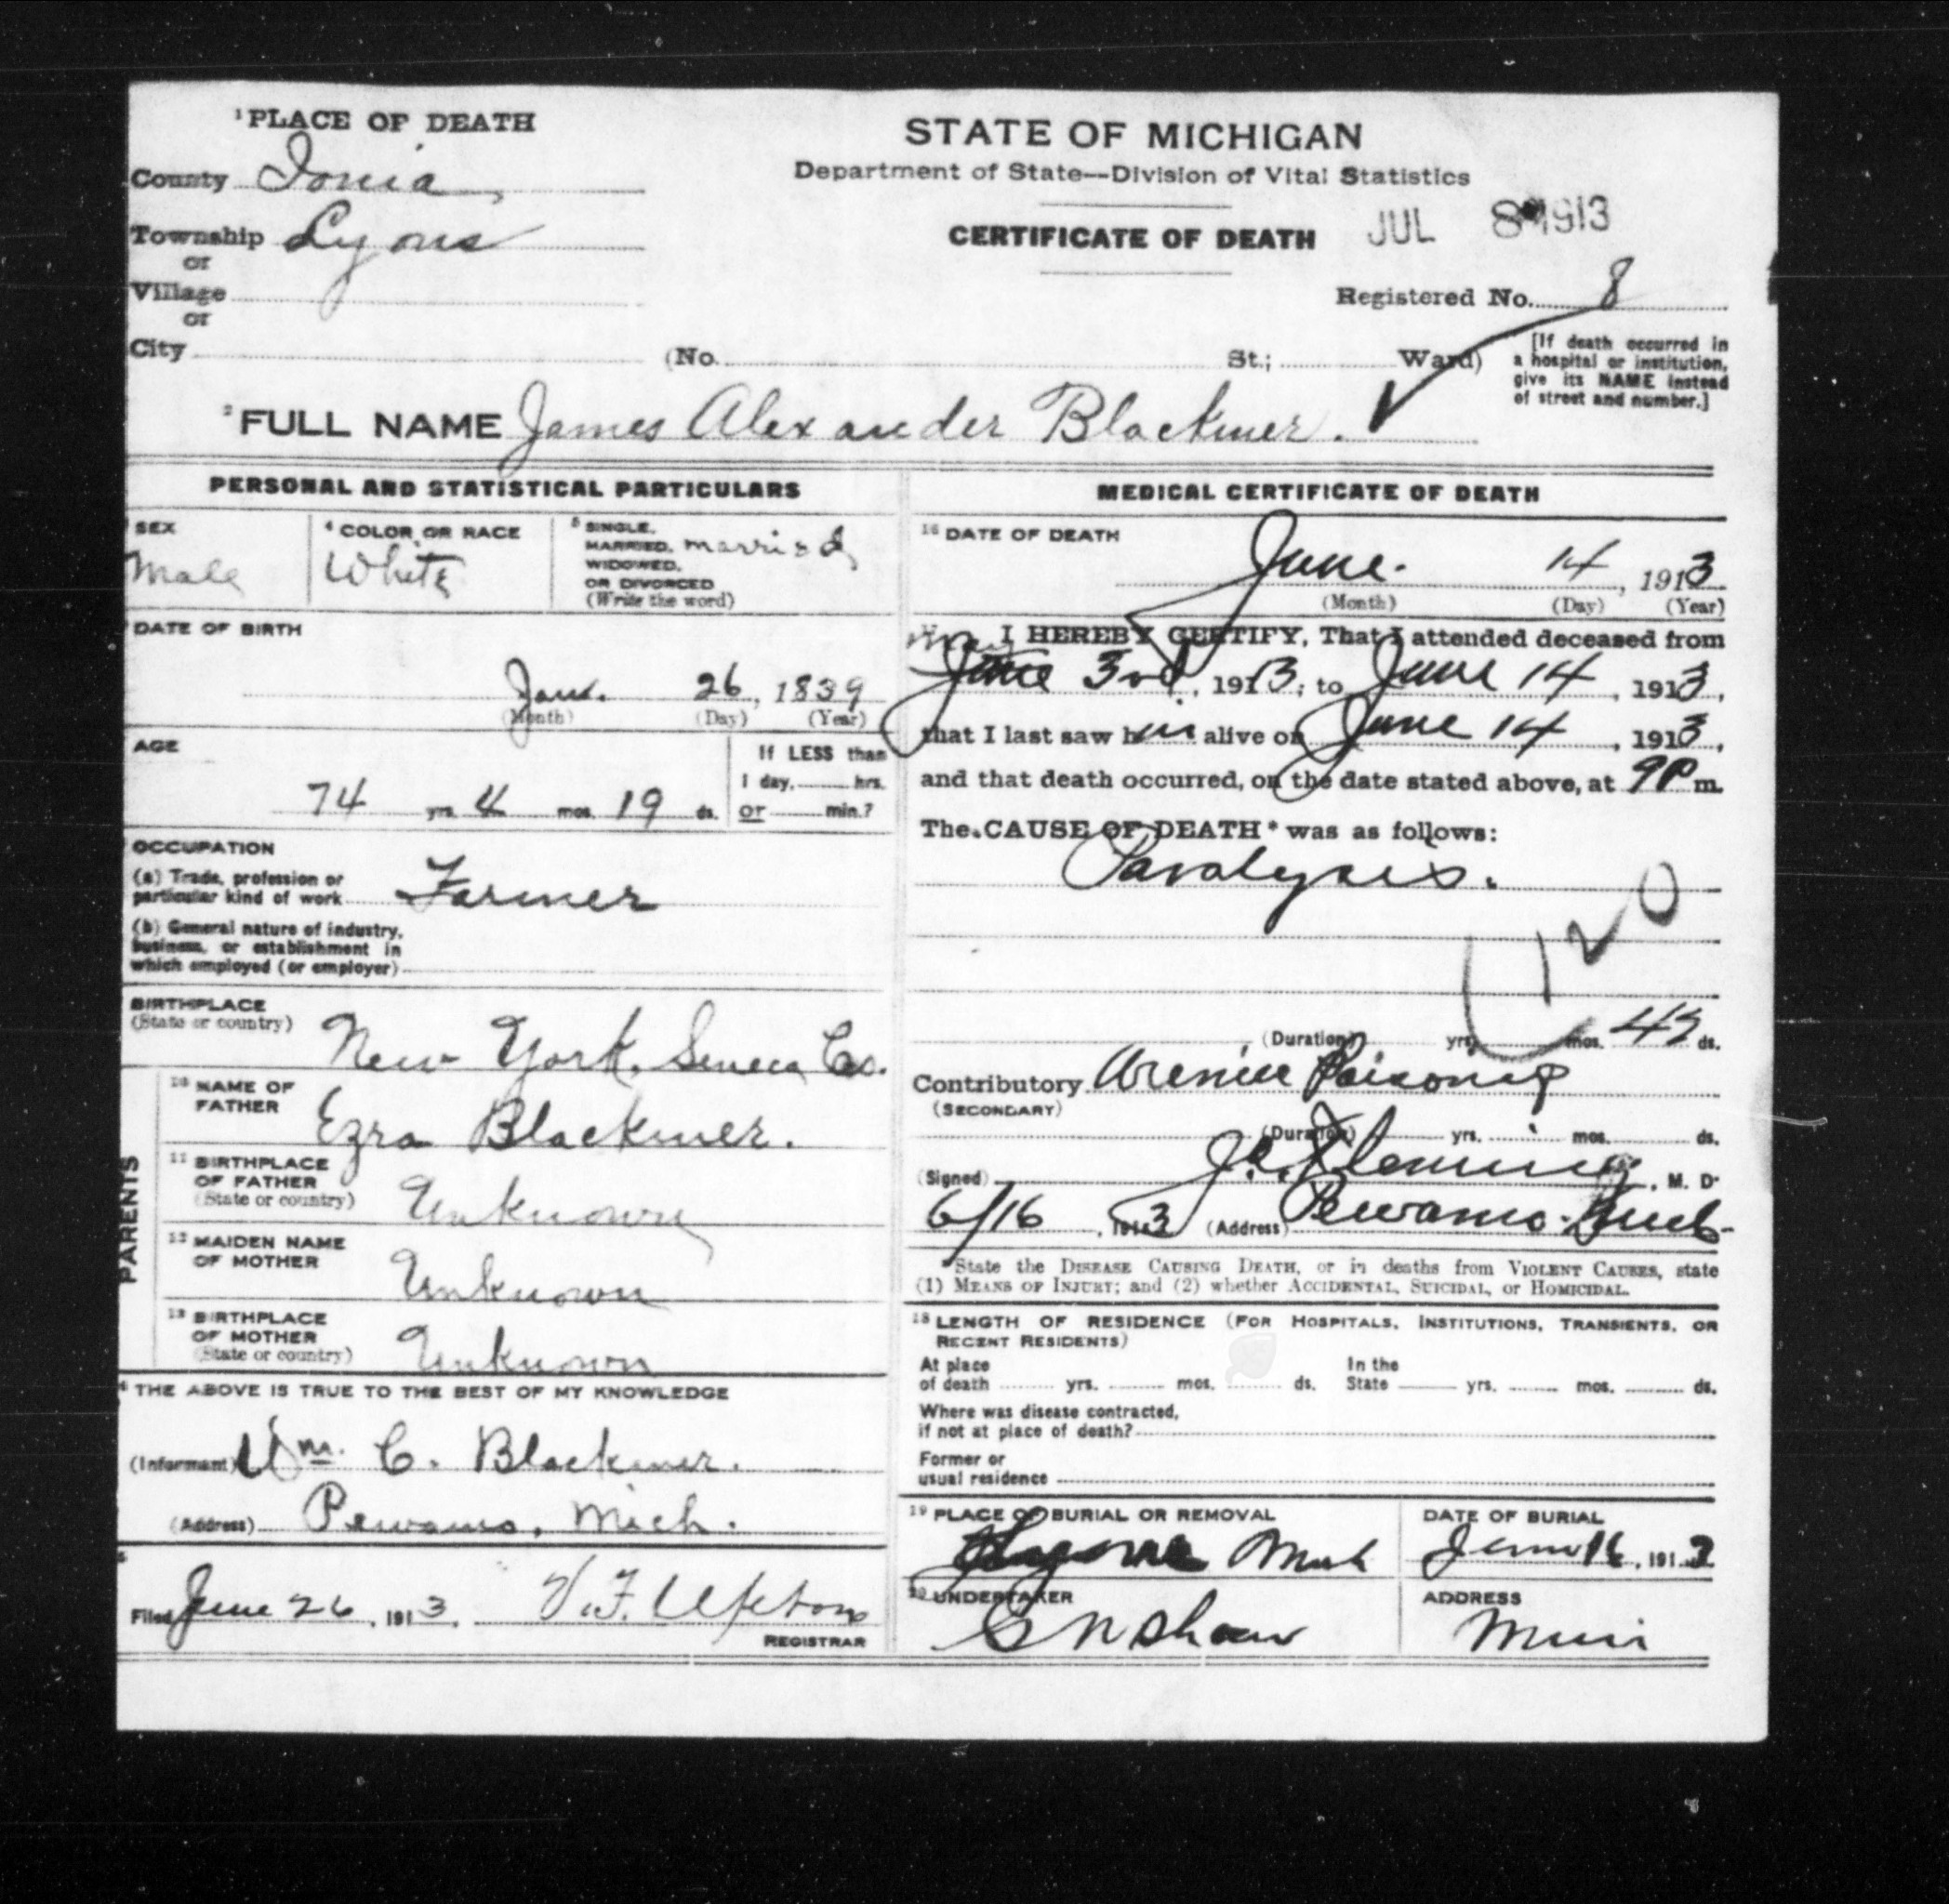 ¹PLACE OF DEATH
County Ionia
Township Lyons
or
Village
or
City (No. St.; Ward)
STATE OF MICHIGAN
Department of State—Division of Vital Statistics
CERTIFICATE OF DEATH JUL 8 1913
Registered No. 8
[If death occurred in
a hospital or institution,
give its NAME instead
of street and number.]
²FULL NAME James Alexander Blackmer.
PERSONAL AND STATISTICAL PARTICULARS
SEX
Male
⁴ COLOR OR RACE
White
⁵ SINGLE,
MARRIED, married
WIDOWED,
OR DIVORCED
(Write the word)
DATE OF BIRTH
Jan. 26, 1839
(Month) (Day) (Year)
AGE
74 yrs. 4 mos. 19 ds.
If LESS than
1 day, hrs.
or min.?
OCCUPATION
(a) Trade, profession or
particular kind of work Farmer
(b) General nature of industry,
business, or establishment in
which employed (or employer)
BIRTHPLACE
(State or country) New York, Seneca Co.
PARENTS
¹⁰ NAME OF
FATHER Ezra Blackmer.
¹¹ BIRTHPLACE
OF FATHER
(State or country) Unknown
¹² MAIDEN NAME
OF MOTHER Unknown
¹³ BIRTHPLACE
OF MOTHER
(State or country) Unknown
THE ABOVE IS TRUE TO THE BEST OF MY KNOWLEDGE
(Informant) Wm. C. Blackmer.
(Address) Pewamo, Mich.
Filed June 26, 1913. V. F. Upton
REGISTRAR
MEDICAL CERTIFICATE OF DEATH
¹⁶ DATE OF DEATH
June. 14, 1913
(Month) (Day) (Year)
I HEREBY CERTIFY, That I attended deceased from
May June 3rd, 1913; to June 14, 1913,
that I last saw him alive on June 14, 1913,
and that death occurred, on the date stated above, at 9P m.
The CAUSE OF DEATH* was as follows:
Paralysis.
120
(Duration) yrs. mos. 43 ds.
Contributory Arsenic Poisoning
(SECONDARY)
(Duration) yrs. mos. ds.
(Signed) Fleming, M. D.
6/16, 1913 (Address) Pewamo. Mich.
*State the DISEASE CAUSING DEATH, or in deaths from VIOLENT CAUSES, state
(1) MEANS OF INJURY; and (2) whether ACCIDENTAL, SUICIDAL, or HOMICIDAL.
¹⁸ LENGTH OF RESIDENCE (FOR HOSPITALS, INSTITUTIONS, TRANSIENTS, OR
RECENT RESIDENTS)
At place
of death yrs. mos. ds.
In the
State yrs. mos. ds.
Where was disease contracted,
if not at place of death?
Former or
usual residence
¹⁹ PLACE OF BURIAL OR REMOVAL
Lyons Mich
DATE OF BURIAL
June 16, 1913
²⁰ UNDERTAKER
Shaw
ADDRESS
Muir